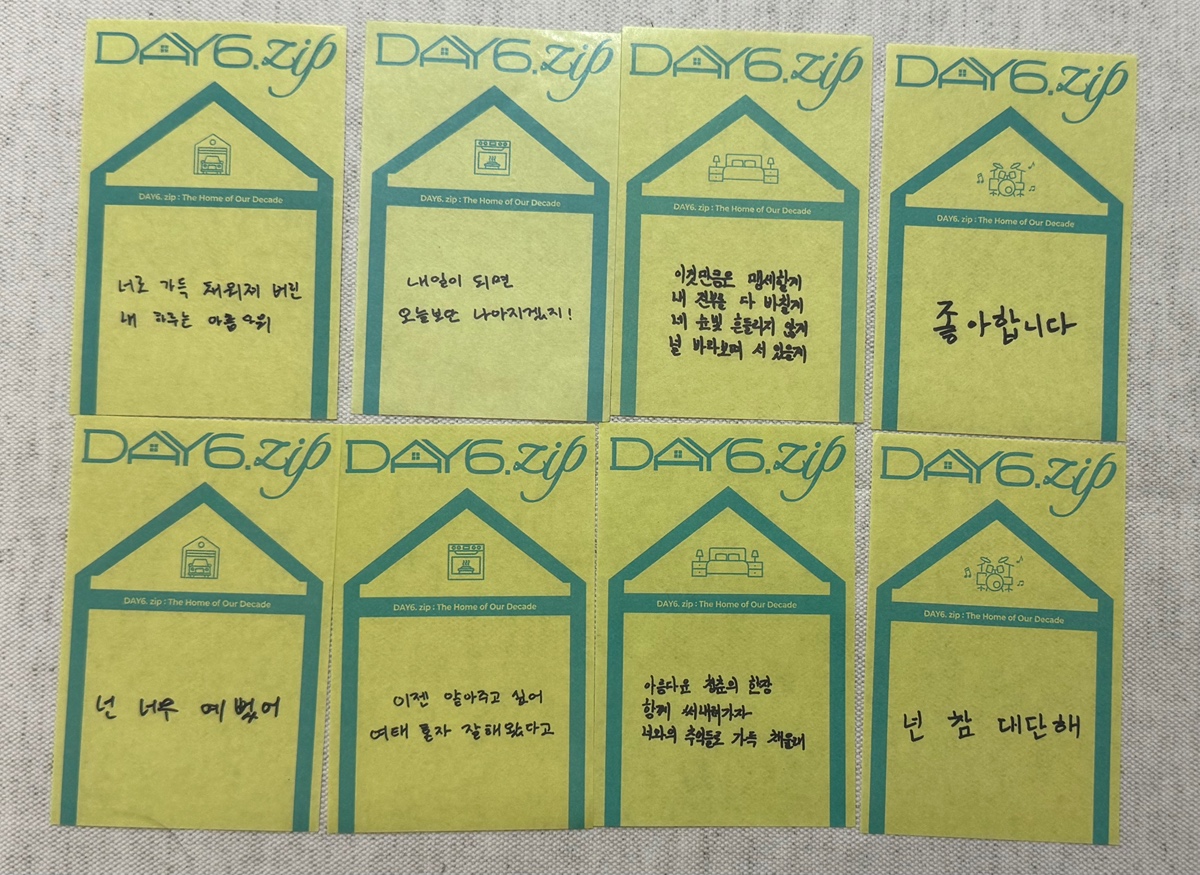 DAY6.zip
DAY6. zip : The Home of Our Decade
너로 가득 채워져 버린
내 하루는 아름다워
DAY6.zip
DAY6. zip : The Home of Our Decade
내일이 되면
오늘보단 나아지겠지!
DAY6.zip
DAY6. zip : The Home of Our Decade
이것만큼은 맹세할게
내 전부를 다 바칠게
네 눈빛 흔들리지 않게
널 바라보며 서 있을게
DAY6.zip
DAY6. zip : The Home of Our Decade
좋아합니다
DAY6.zip
DAY6. zip : The Home of Our Decade
넌 너무 예뻤어
DAY6.zip
DAY6. zip : The Home of Our Decade
이젠 알아주고 싶어
여태 혼자 잘해왔다고
DAY6.zip
DAY6. zip : The Home of Our Decade
아름다운 청춘의 한장
함께 써내려가자
너와의 추억들로 가득 채울래
DAY6.zip
DAY6. zip : The Home of Our Decade
넌 참 대단해